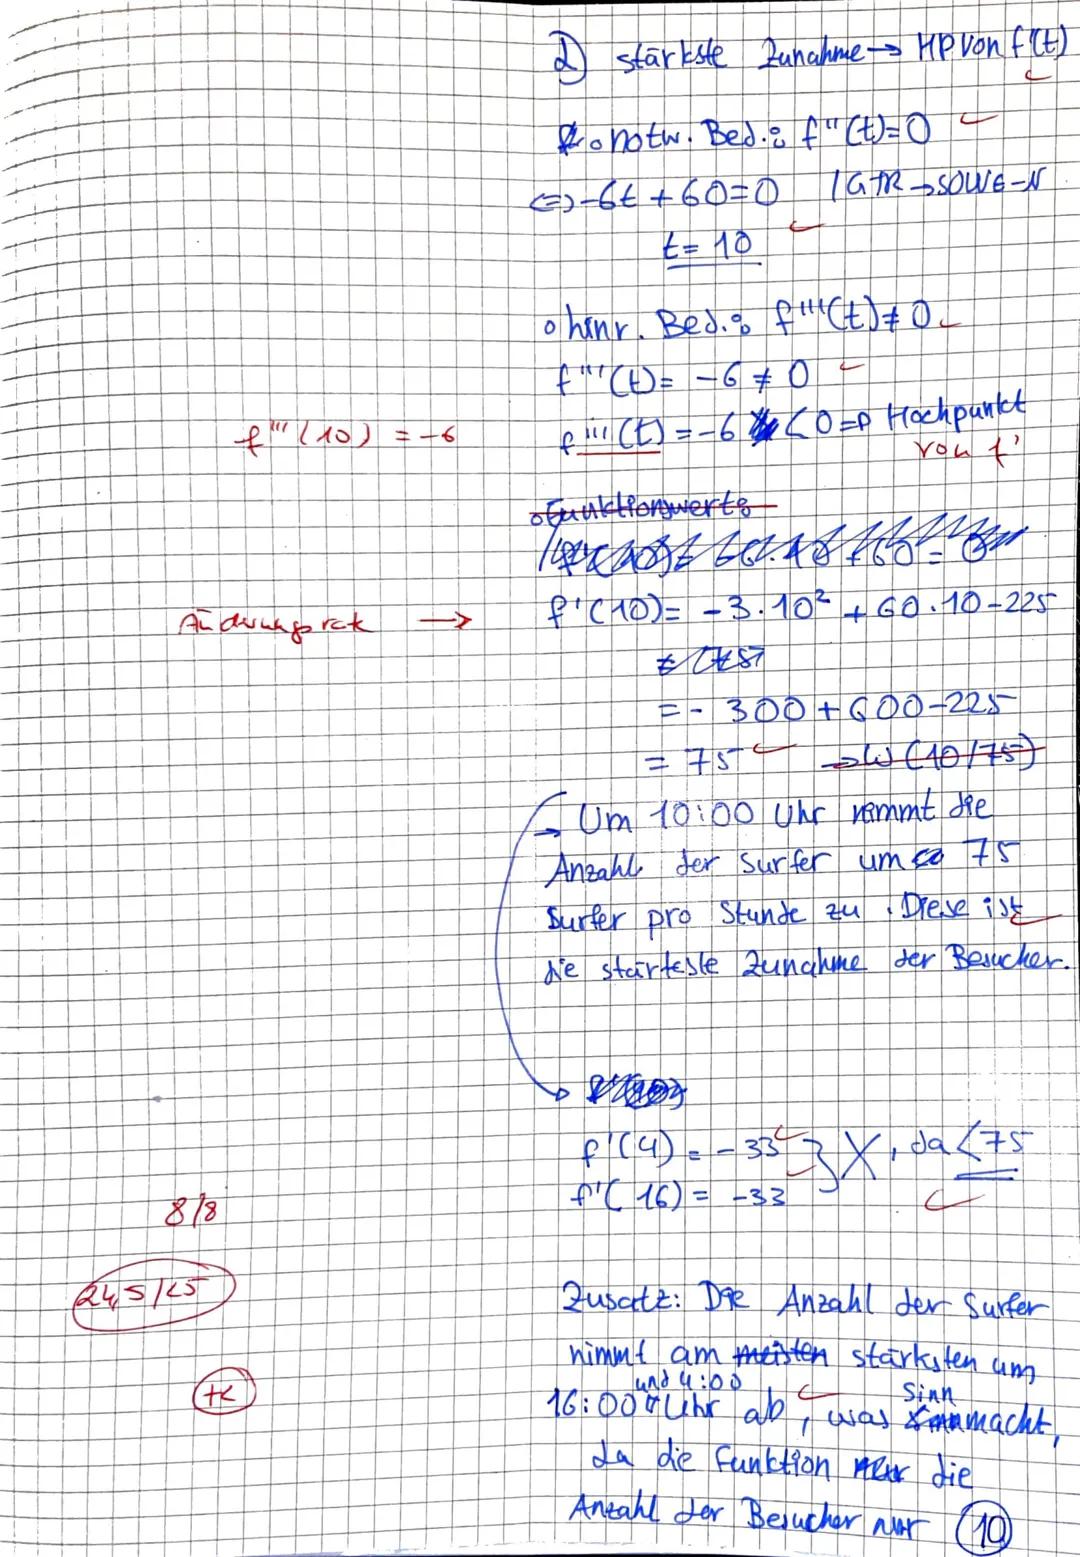 d) stärkste Zunahme → HP von f'(t)
o notw. Bed.: f''(t)=0
<=> -6t + 60=0 | GTR → SOLVE-N
t= 10
o hinr. Bed.: f'''(t)≠0
f'''(t)= -6 ≠ 0
f'''(10) = -6
f'''(t) = -6 <0 => Hochpunkt
von f'
o Funktionswert:
Änderungsrate →
f'(10)= -3·10² + 60·10-225
= - 300 + 600-225
= 75 → W(10/75)
→ Um 10:00 Uhr nimmt die
Anzahl der Surfer um 75
Surfer pro Stunde zu. Diese ist
die stärkste Zunahme der Besucher.
f'(4) = -33 } X, da <75
f'(16) = -33
8/8
24,5/25
Zusatz: Die Anzahl der Surfer
nimmt am meisten stärksten um
16:00 und 4:00 Uhr ab, was Sinn macht,
da die Funktion die
Anzahl der Besucher nur
10